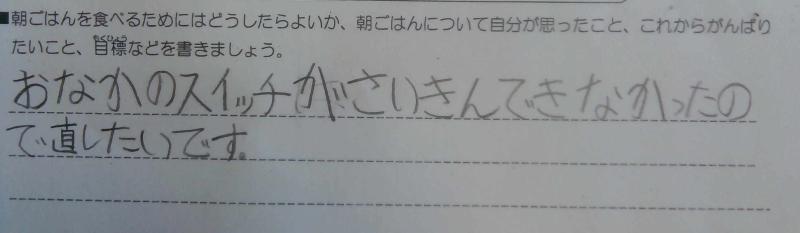 ■朝ごはんを食べるためにはどうしたらよいか、朝ごはんについて自分が思ったこと、これからがんばり
たいこと、目標などを書きましょう。
おなかのスイッチがさいきんできなかったの
で直したいです。